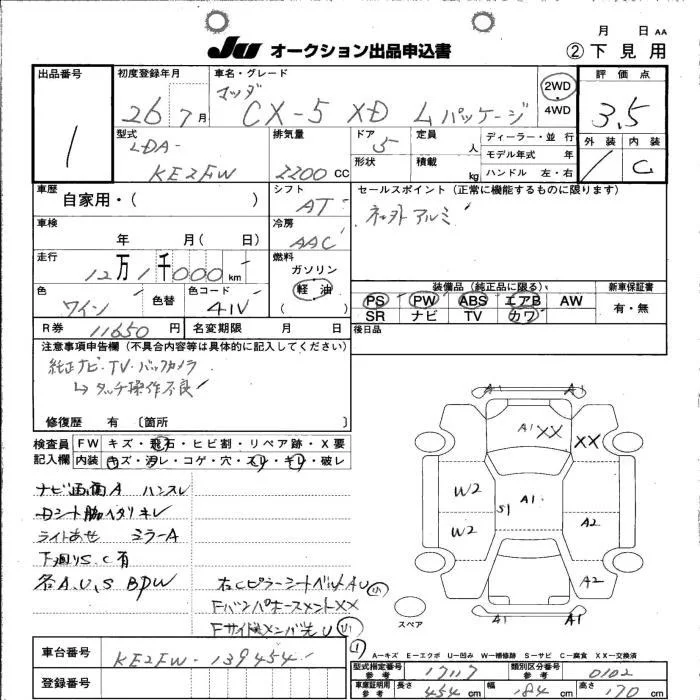 月 日 AA
JU オークション出品申込書
② 下見用
出品番号
1
初度登録年月
26年 7月
車名・グレード
マツダ
CX-5 XD Lパッケージ
2WD
4WD
評価点
3.5
型式
LDA-
KE2FW
排気量
2200 CC
ドア
5
形状
定員
人
積載
kg
ディーラー・並 行
モデル年式 年
ハンドル 左・右
外装 内装
C
車歴
自家用・( )
シフト
AT
セールスポイント (正常に機能するものに限ります)
社外アルミ
車検
年 月( 日)
冷房
AAC
走行
12万1千000km
燃料
ガソリン
軽油
( )
色
ワイン
色替
色コード
41V
装備品 (純正品に限る)
新車保証書
PS PW ABS エアB AW
SR ナビ TV カワ
有・無
R券 11650円
名変期限 月 日
後日品
注意事項申告欄 (不具合内容等は具体的に記入してください)
純正ナビ・TV・バックカメラ
↳タッチ操作不良
修復歴 有 〔箇所 〕
検査員
記入欄
FW キズ・飛石・ヒビ割・リペア跡・X要
内装 キズ・汚レ・コゲ・穴・スレ・キレ・破レ
ナビ画面A ハンスレ
Dシート脇ヘタリキレ
ライトあせ ミラーA
下廻りS.C有
各A.U.S BPW
右CピラーシートベルトAU
FバンパホースメントXX
Fサイドメンバ先U
A1
A1 XX
XX
W2
W2
S1
A1
A2
A2
A1
A1
スペア
A-キズ E-エクボ U-凹み W-補修跡 S-サビ C-腐食 XX-交換済
車台番号
KE2FW-139454
登録番号
型式指定番号
参考
17117
類別区分番号
参考
0102
車庫証明用
参考
長さ 454 cm
幅 184 cm
高さ 170 cm